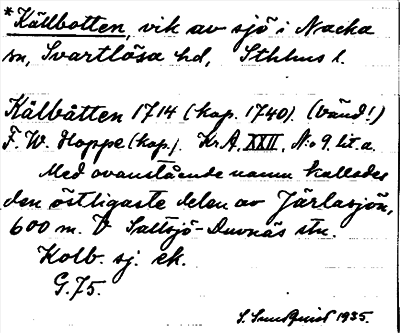 *Källbotten, vik av sjö i Nacka
sn, Svartlösa hd, Sthlms l.
Kälbåtten 1714 (kop. 1740). (vänd!)
F. W. Hoppe (kop.). Kr.A. XXII, N:o 9. lit. a.
Med ovanstående namn kallades
den östligaste delen av Järlasjön,
600 m. V Saltsjö-Duvnäs stn.
Kolb. sj. ek.
G. 75.
S. Sundquist 1935.